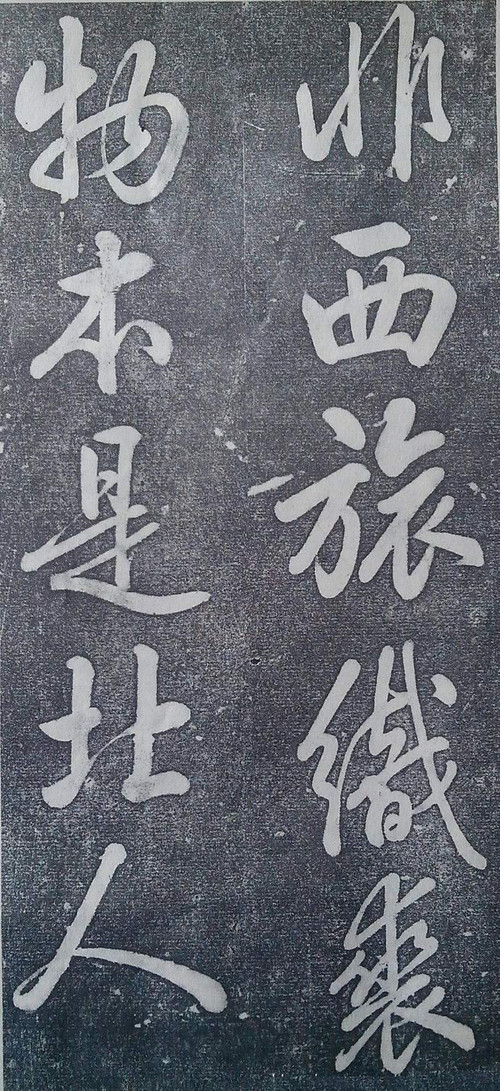 西旅織裘
物本是北人